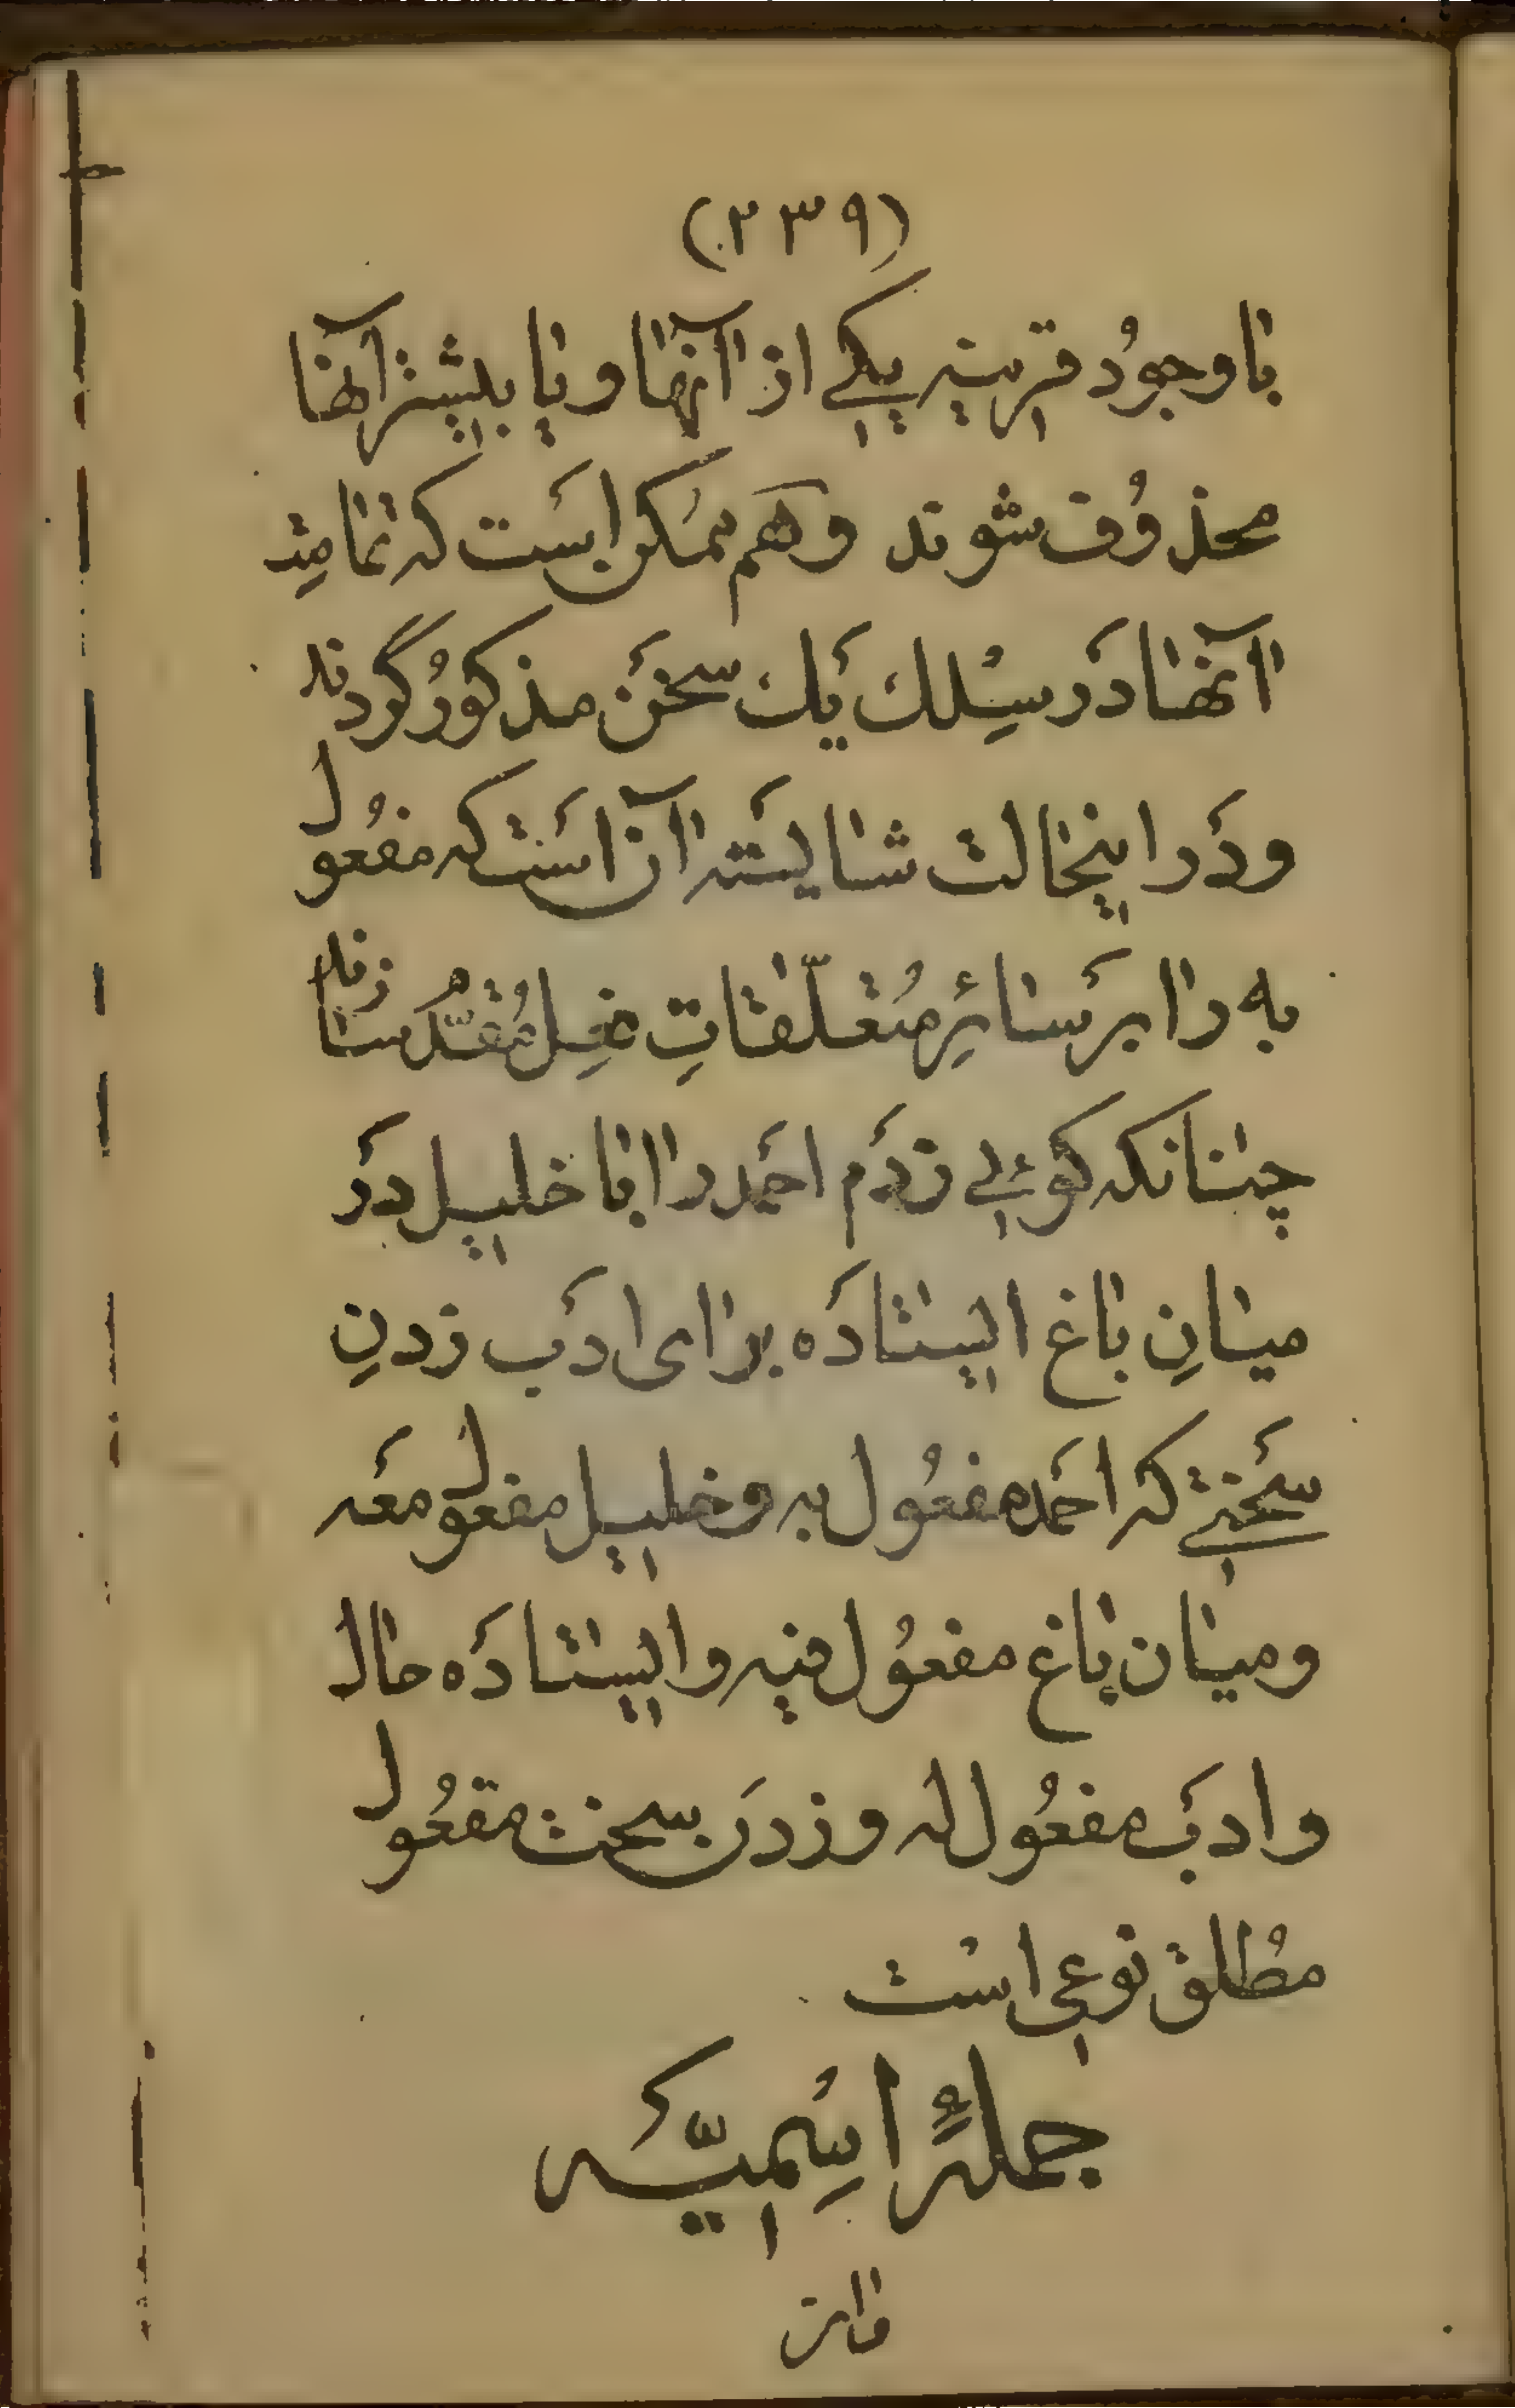 (٢٣٩)
باوجوُد قرینه یکے از آنها ویا بیشتر آنها
محذوُف شوند وهم ممکن است که تمامِی
آنها دَر سِلك یَك سخَن مذکوُر گردند
ودَر اینحالت شایسَته آن اَست که مفعوُل
به را برَسائرِ مُتعلّقاتِ فعِل مُقدّم سازند
چنانکه گوئے زدَم احمَد را با خلیل دَر
میانِ باغ ایستادَه برای ادَب زدنِ
سَختے که احمَد مفعوُل به و خلیل مفعول معَه
ومیان باغ مفعوُل فیه وایستادَه حال
وادَب مفعوُل له وزدَن سخت مفعوُل
مُطلق نوعی است
جملهٔ اسِمیَّه